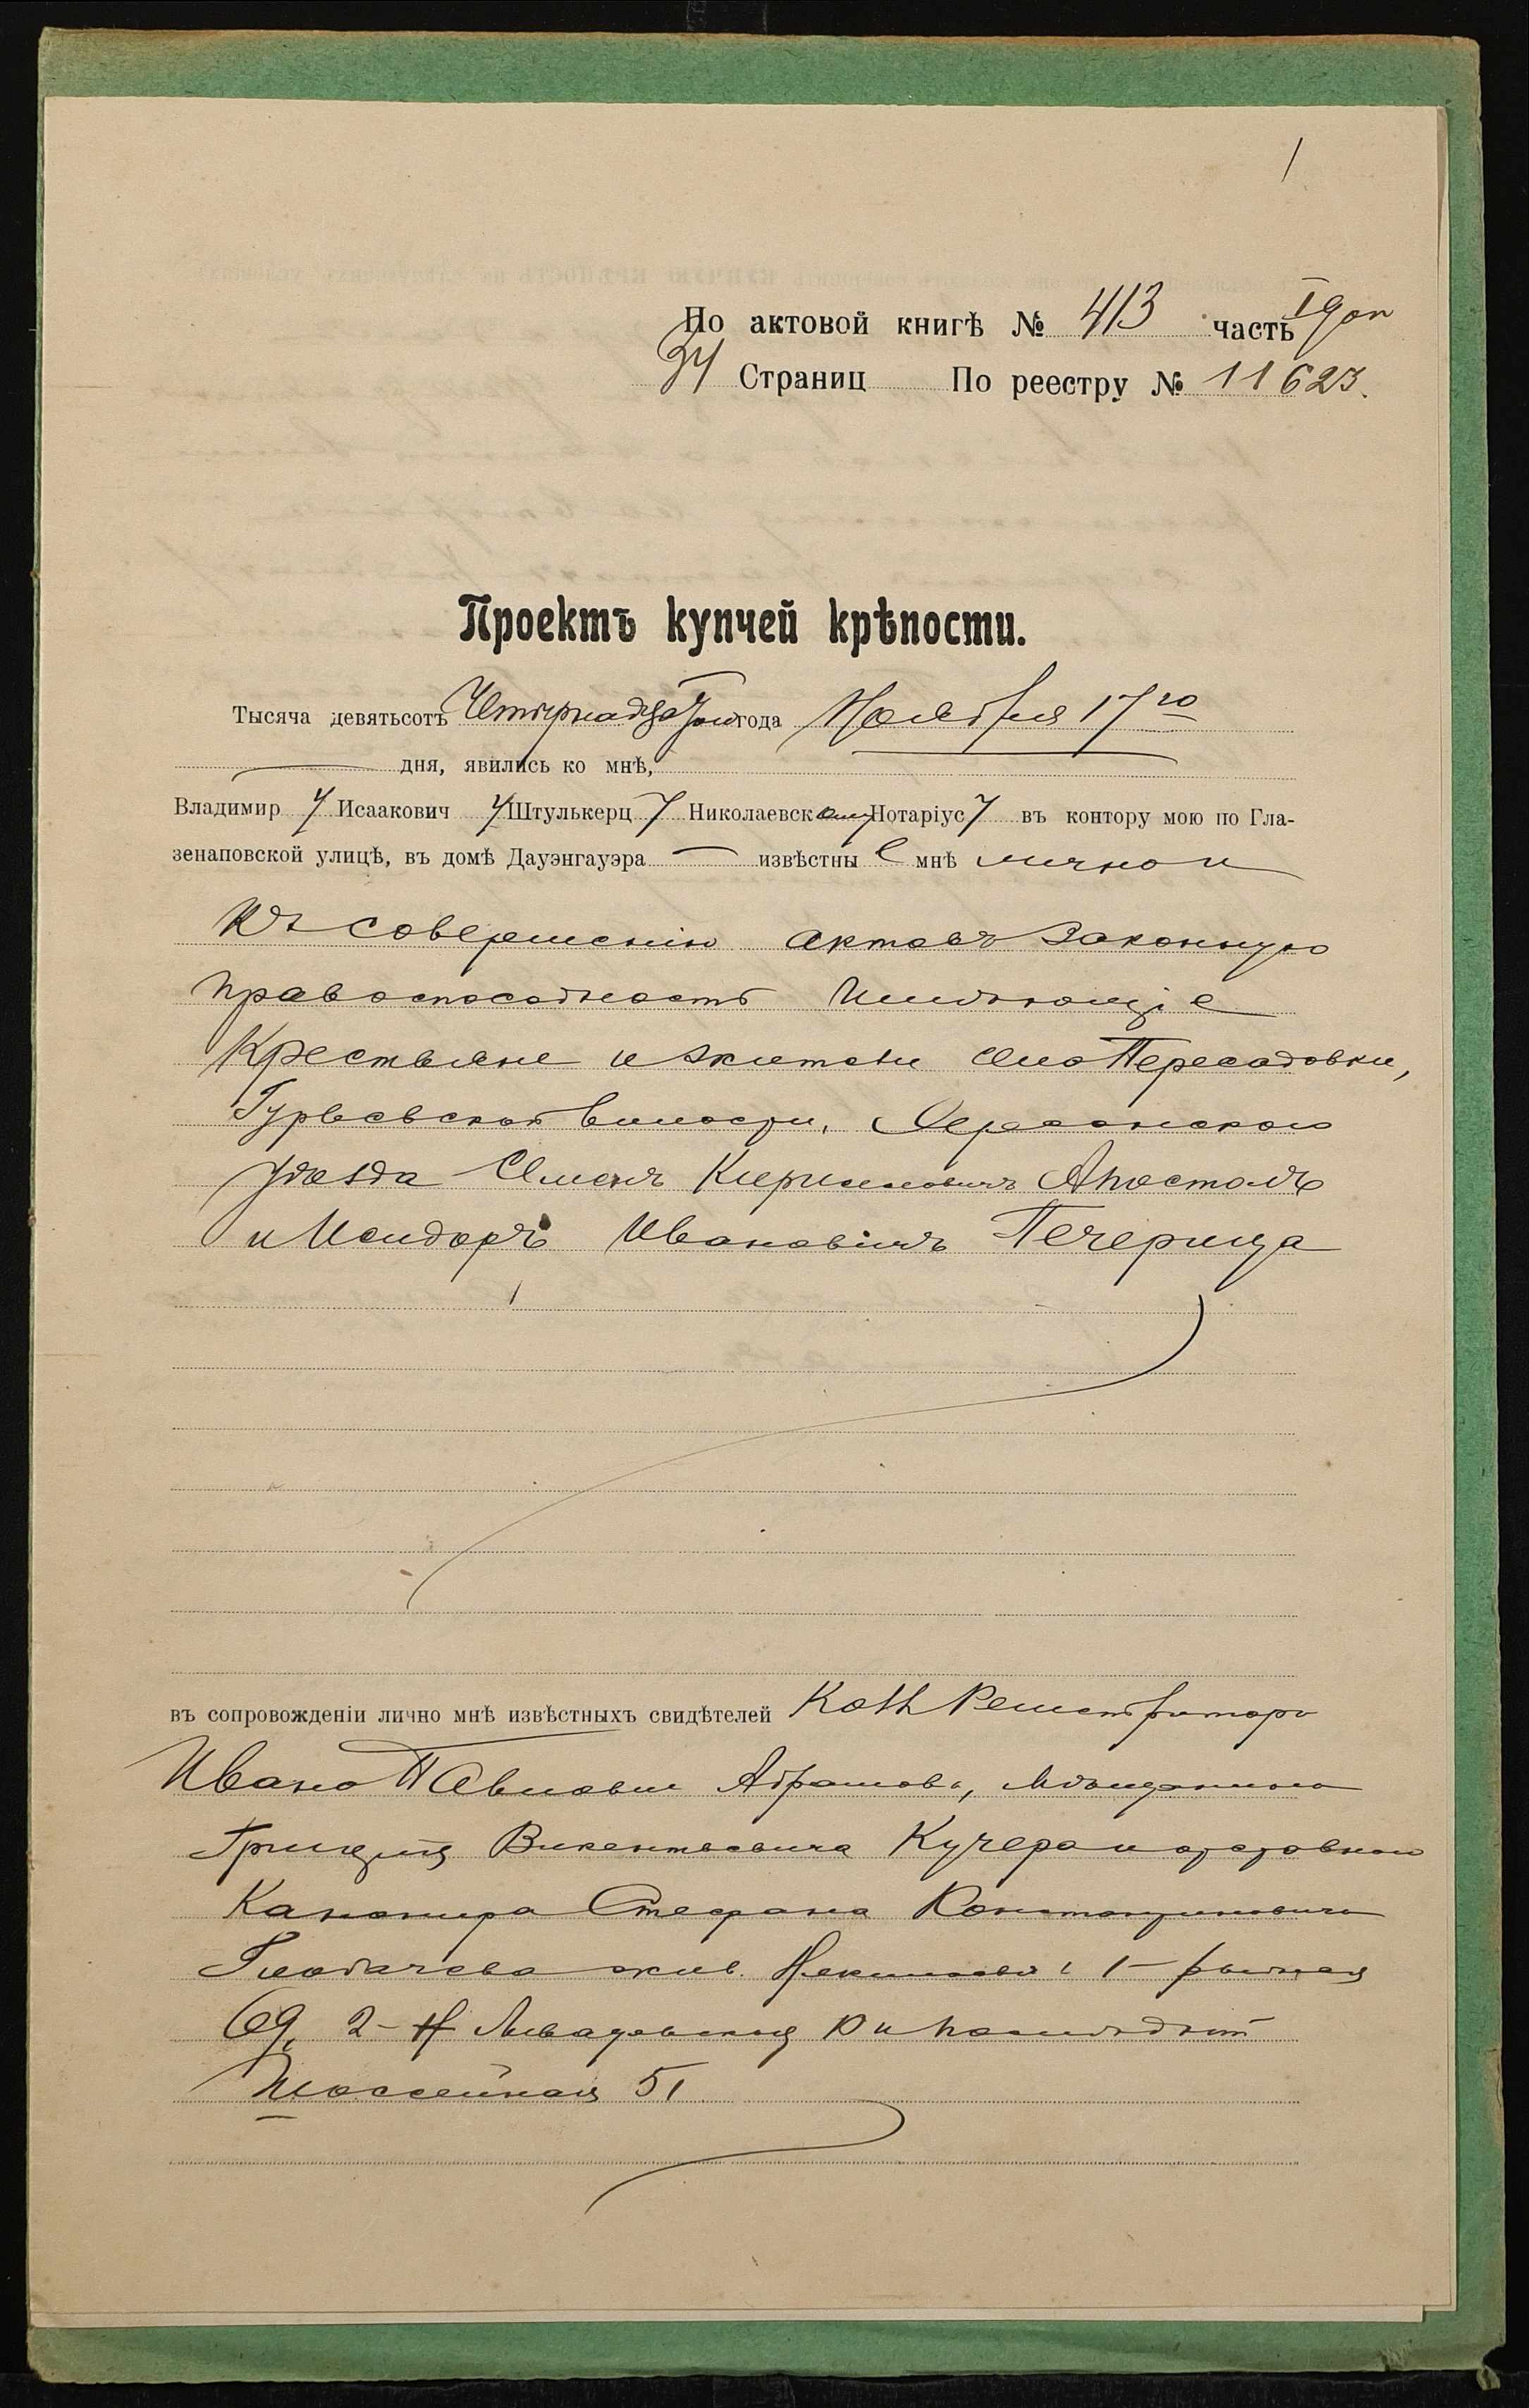 1
По актовой книгѣ № 413 часть I доп
34 Страниц По реестру № 11623.
Проектъ купчей крѣпости.
Тысяча девятьсотъ Четырнадцатаго года Ноября 17го
дня, явились ко мнѣ,
Владимир у Исаакович у Штулькерц у Николаевскому Нотаріусу въ контору мою по Гла-
зенаповской улицѣ, въ домѣ Дауэнгауэра извѣстны е мнѣ лично и
Къ совершенію актовъ законную
правоспособность имѣющіе
Крестьяне и жители села Пересадовки,
Гурьевской волости, Херсонскаго
уѣзда Семенъ Кирилловичъ Апостолъ
и Исидоръ Ивановичъ Печерица
въ сопровожденіи лично мнѣ извѣстныхъ свидѣтелей Колл Регистратора
Ивана Павловича Абрамова, Мѣщанина
Григорія Викентьевича Кучера и отставного
Канонира Стефана Константиновича
жив. 1-
69, 2-й 10 и послѣдній
Шоссейная 51